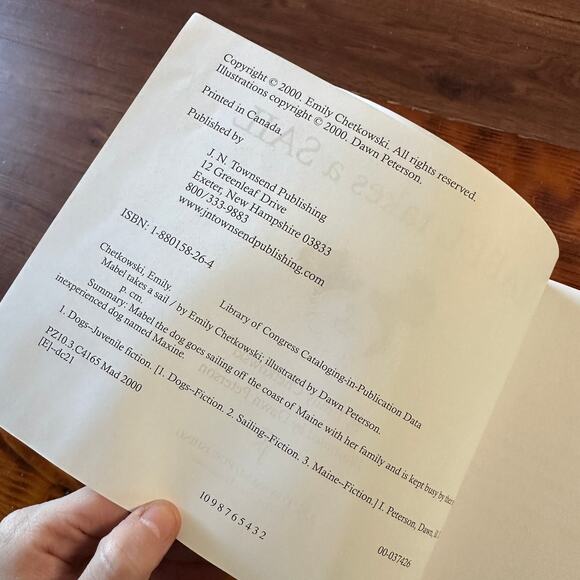 Copyright © 2000. Emily Chetkowski. All rights reserved.
Illustrations copyright © 2000. Dawn Peterson.
Printed in Canada.
Published by
J. N. Townsend Publishing
12 Greenleaf Drive
Exeter, New Hampshire 03833
800/333-9883
www.jntownsendpublishing.com
ISBN: 1-880158-26-4
Library of Congress Cataloging-in-Publication Data
Chetkowski, Emily.
Mabel takes a sail / by Emily Chetkowski; illustrated by Dawn Peterson.
p. cm.
Summary: Mabel the dog goes sailing off the coast of Maine with her family and is kept busy by
inexperienced dog named Maxine.
1. Dogs--Juvenile fiction. [1. Dogs--Fiction. 2. Sailing--Fiction. 3. Maine--Fiction.] I. Peterson, Dawn,
PZ10.3.C4165 Mad 2000
[E]-dc21
10 9 8 7 6 5 4 3 2
00-037426